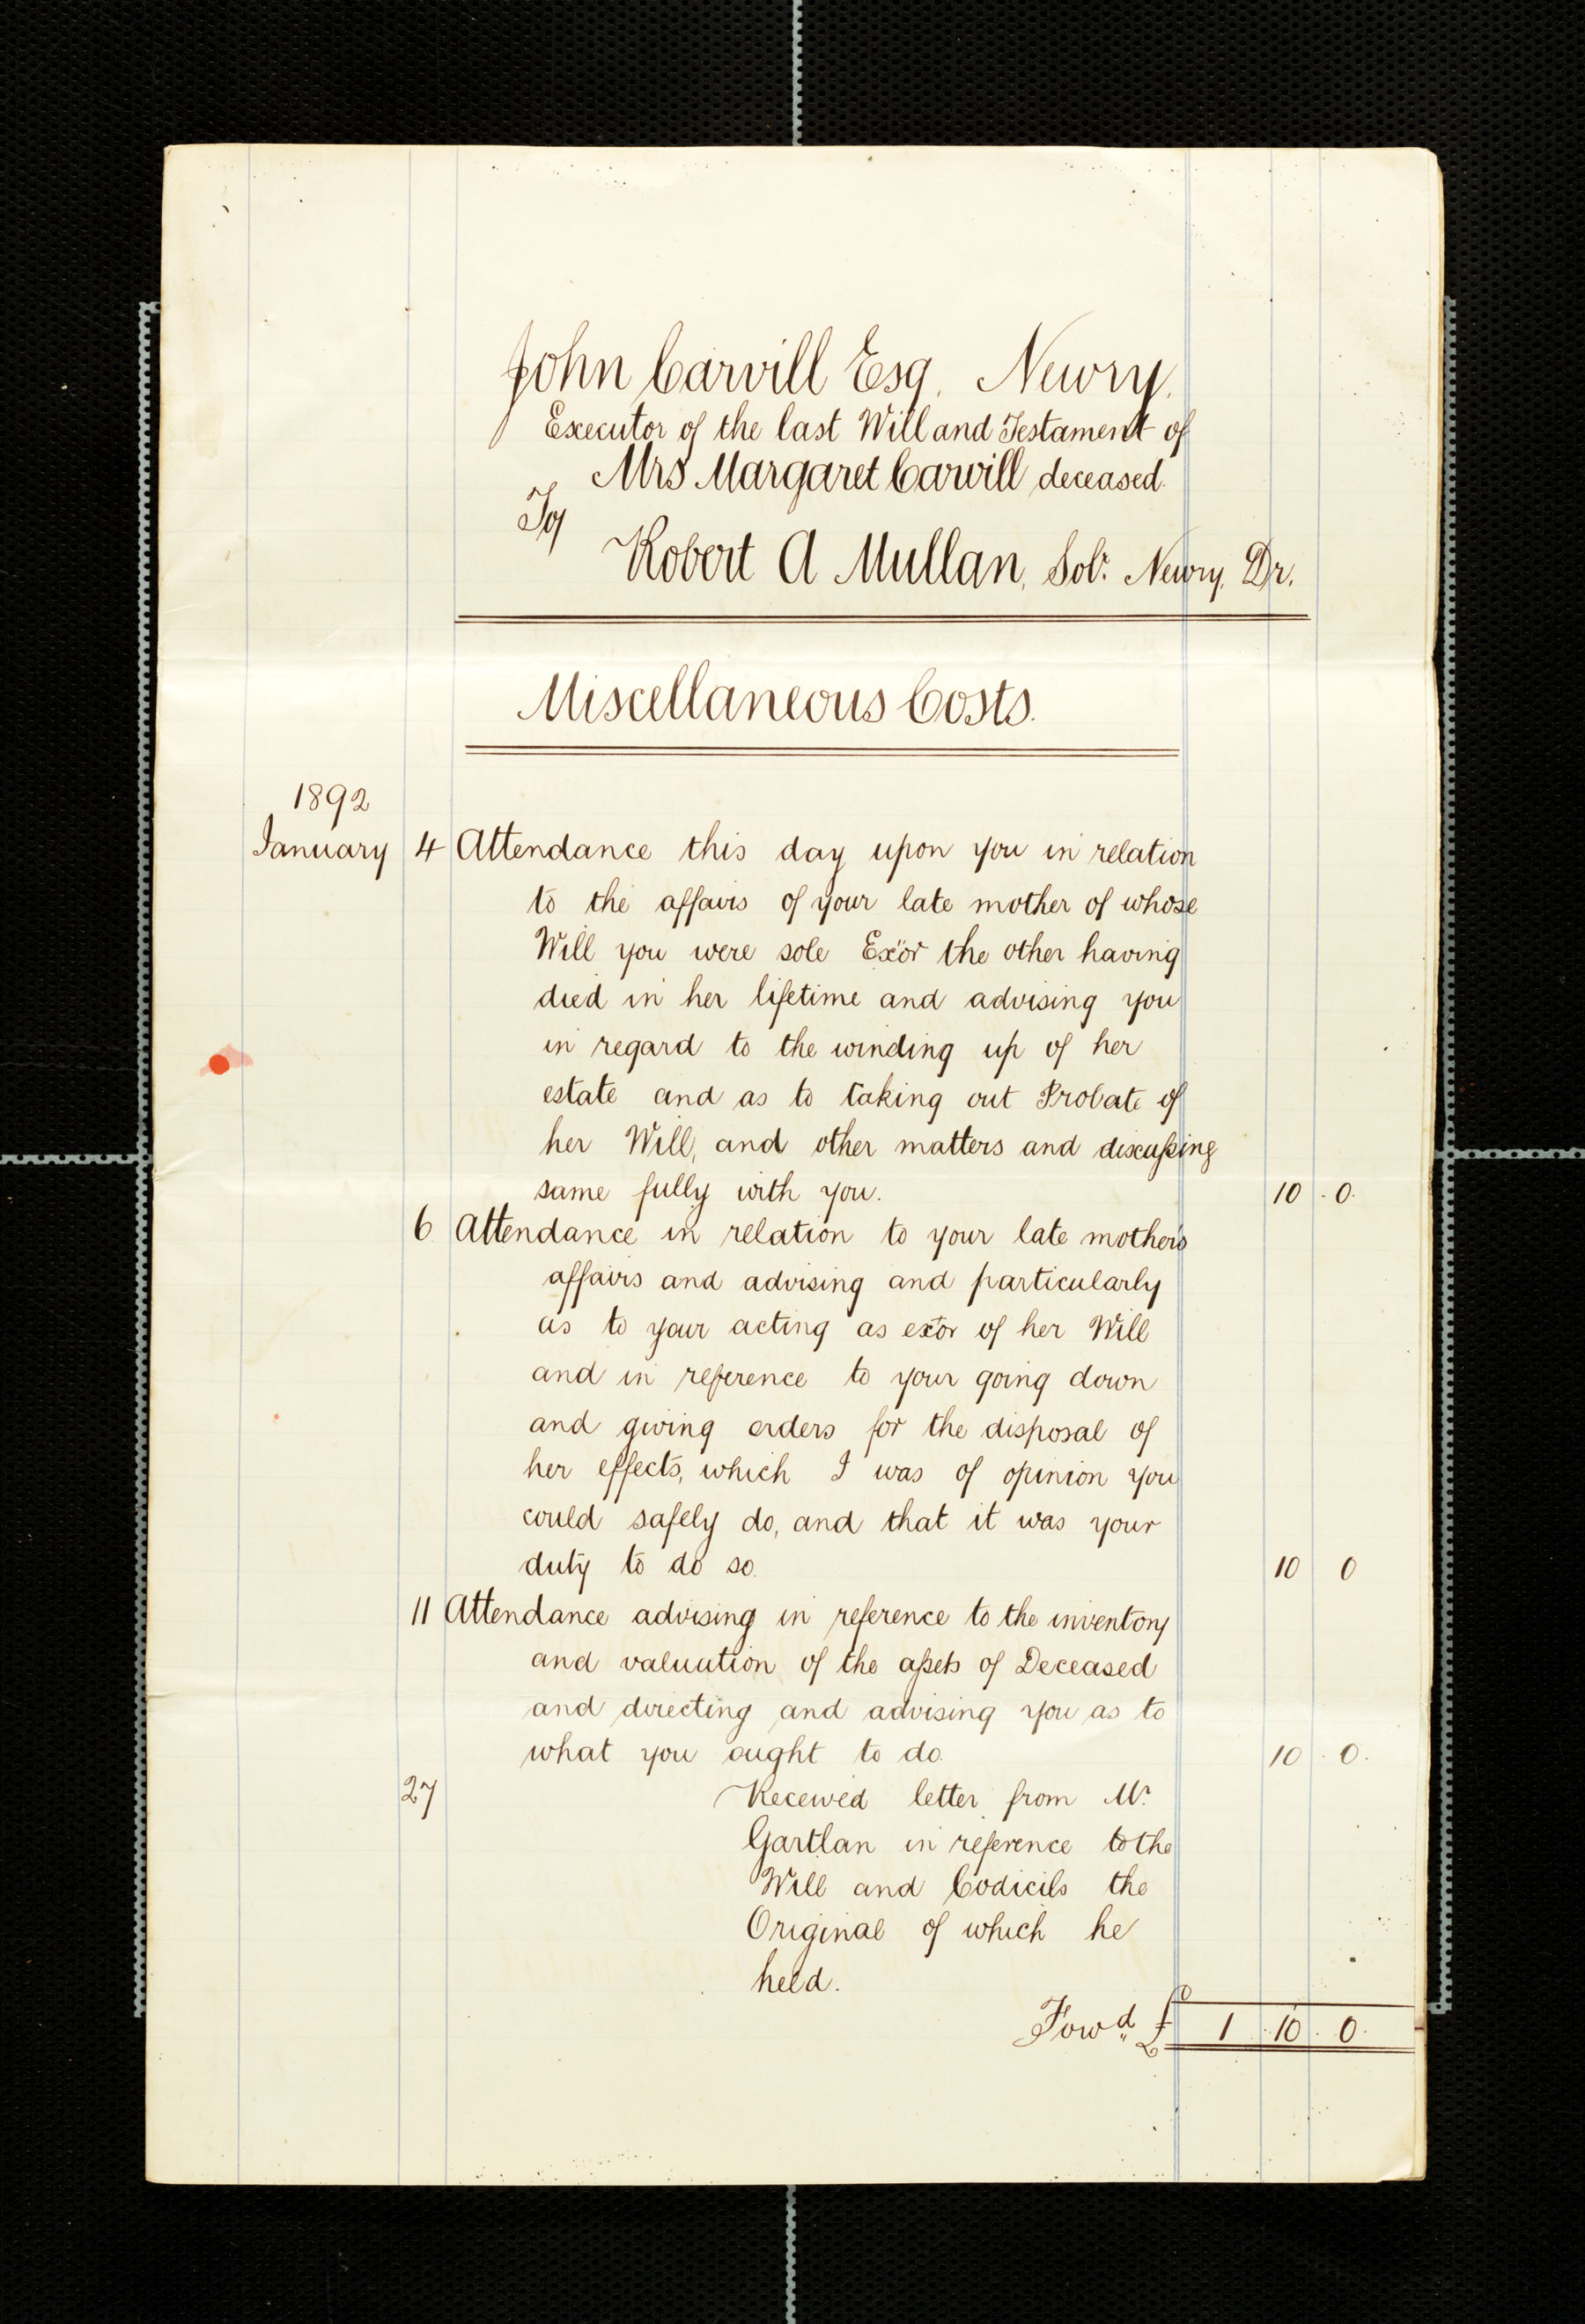 John Carvill Esq. Newry.
Executor of the last Will and Testament of
Mrs Margaret Carvill deceased.
To
Robert A Mullan, Solr. Newry, Dr.
Miscellaneous Costs.
1892
January 4 Attendance this day upon you in relation
to the affairs of your late mother of whose
Will you were sole Exor the other having
died in her lifetime and advising you
in regard to the winding up of her
estate and as to taking out Probate of
her Will, and other matters and discussing
same fully with you. 10 . 0.
6 Attendance in relation to your late mother's
affairs and advising and particularly
as to your acting as exor of her Will
and in reference to your going down
and giving orders for the disposal of
her effects, which I was of opinion you
could safely do, and that it was your
duty to do so. 10 0
11 Attendance advising in reference to the inventory
and valuation of the assets of Deceased
and directing and advising you as to
what you ought to do. 10 . 0.
27 Received letter from Mr.
Gartlan in reference to the
Will and Codicils the
Original of which he
held.
Forwd £ 1 . 10 . 0.